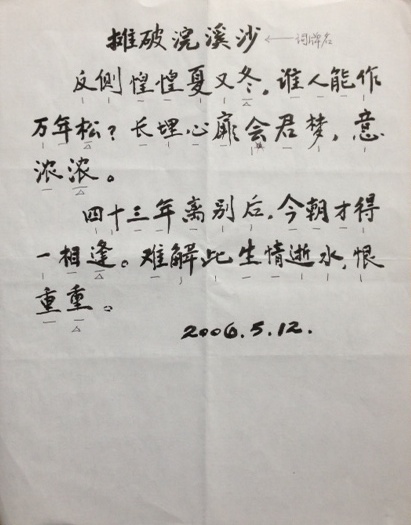 摊破浣溪沙 ← 词牌名
反侧惶惶夏又冬。谁人能作
万年松？长埋心廓会君梦，意
浓浓。
四十三年离别后，今朝才得
一相逢。难解此生情逝水，恨
重重。
2006.5.12.